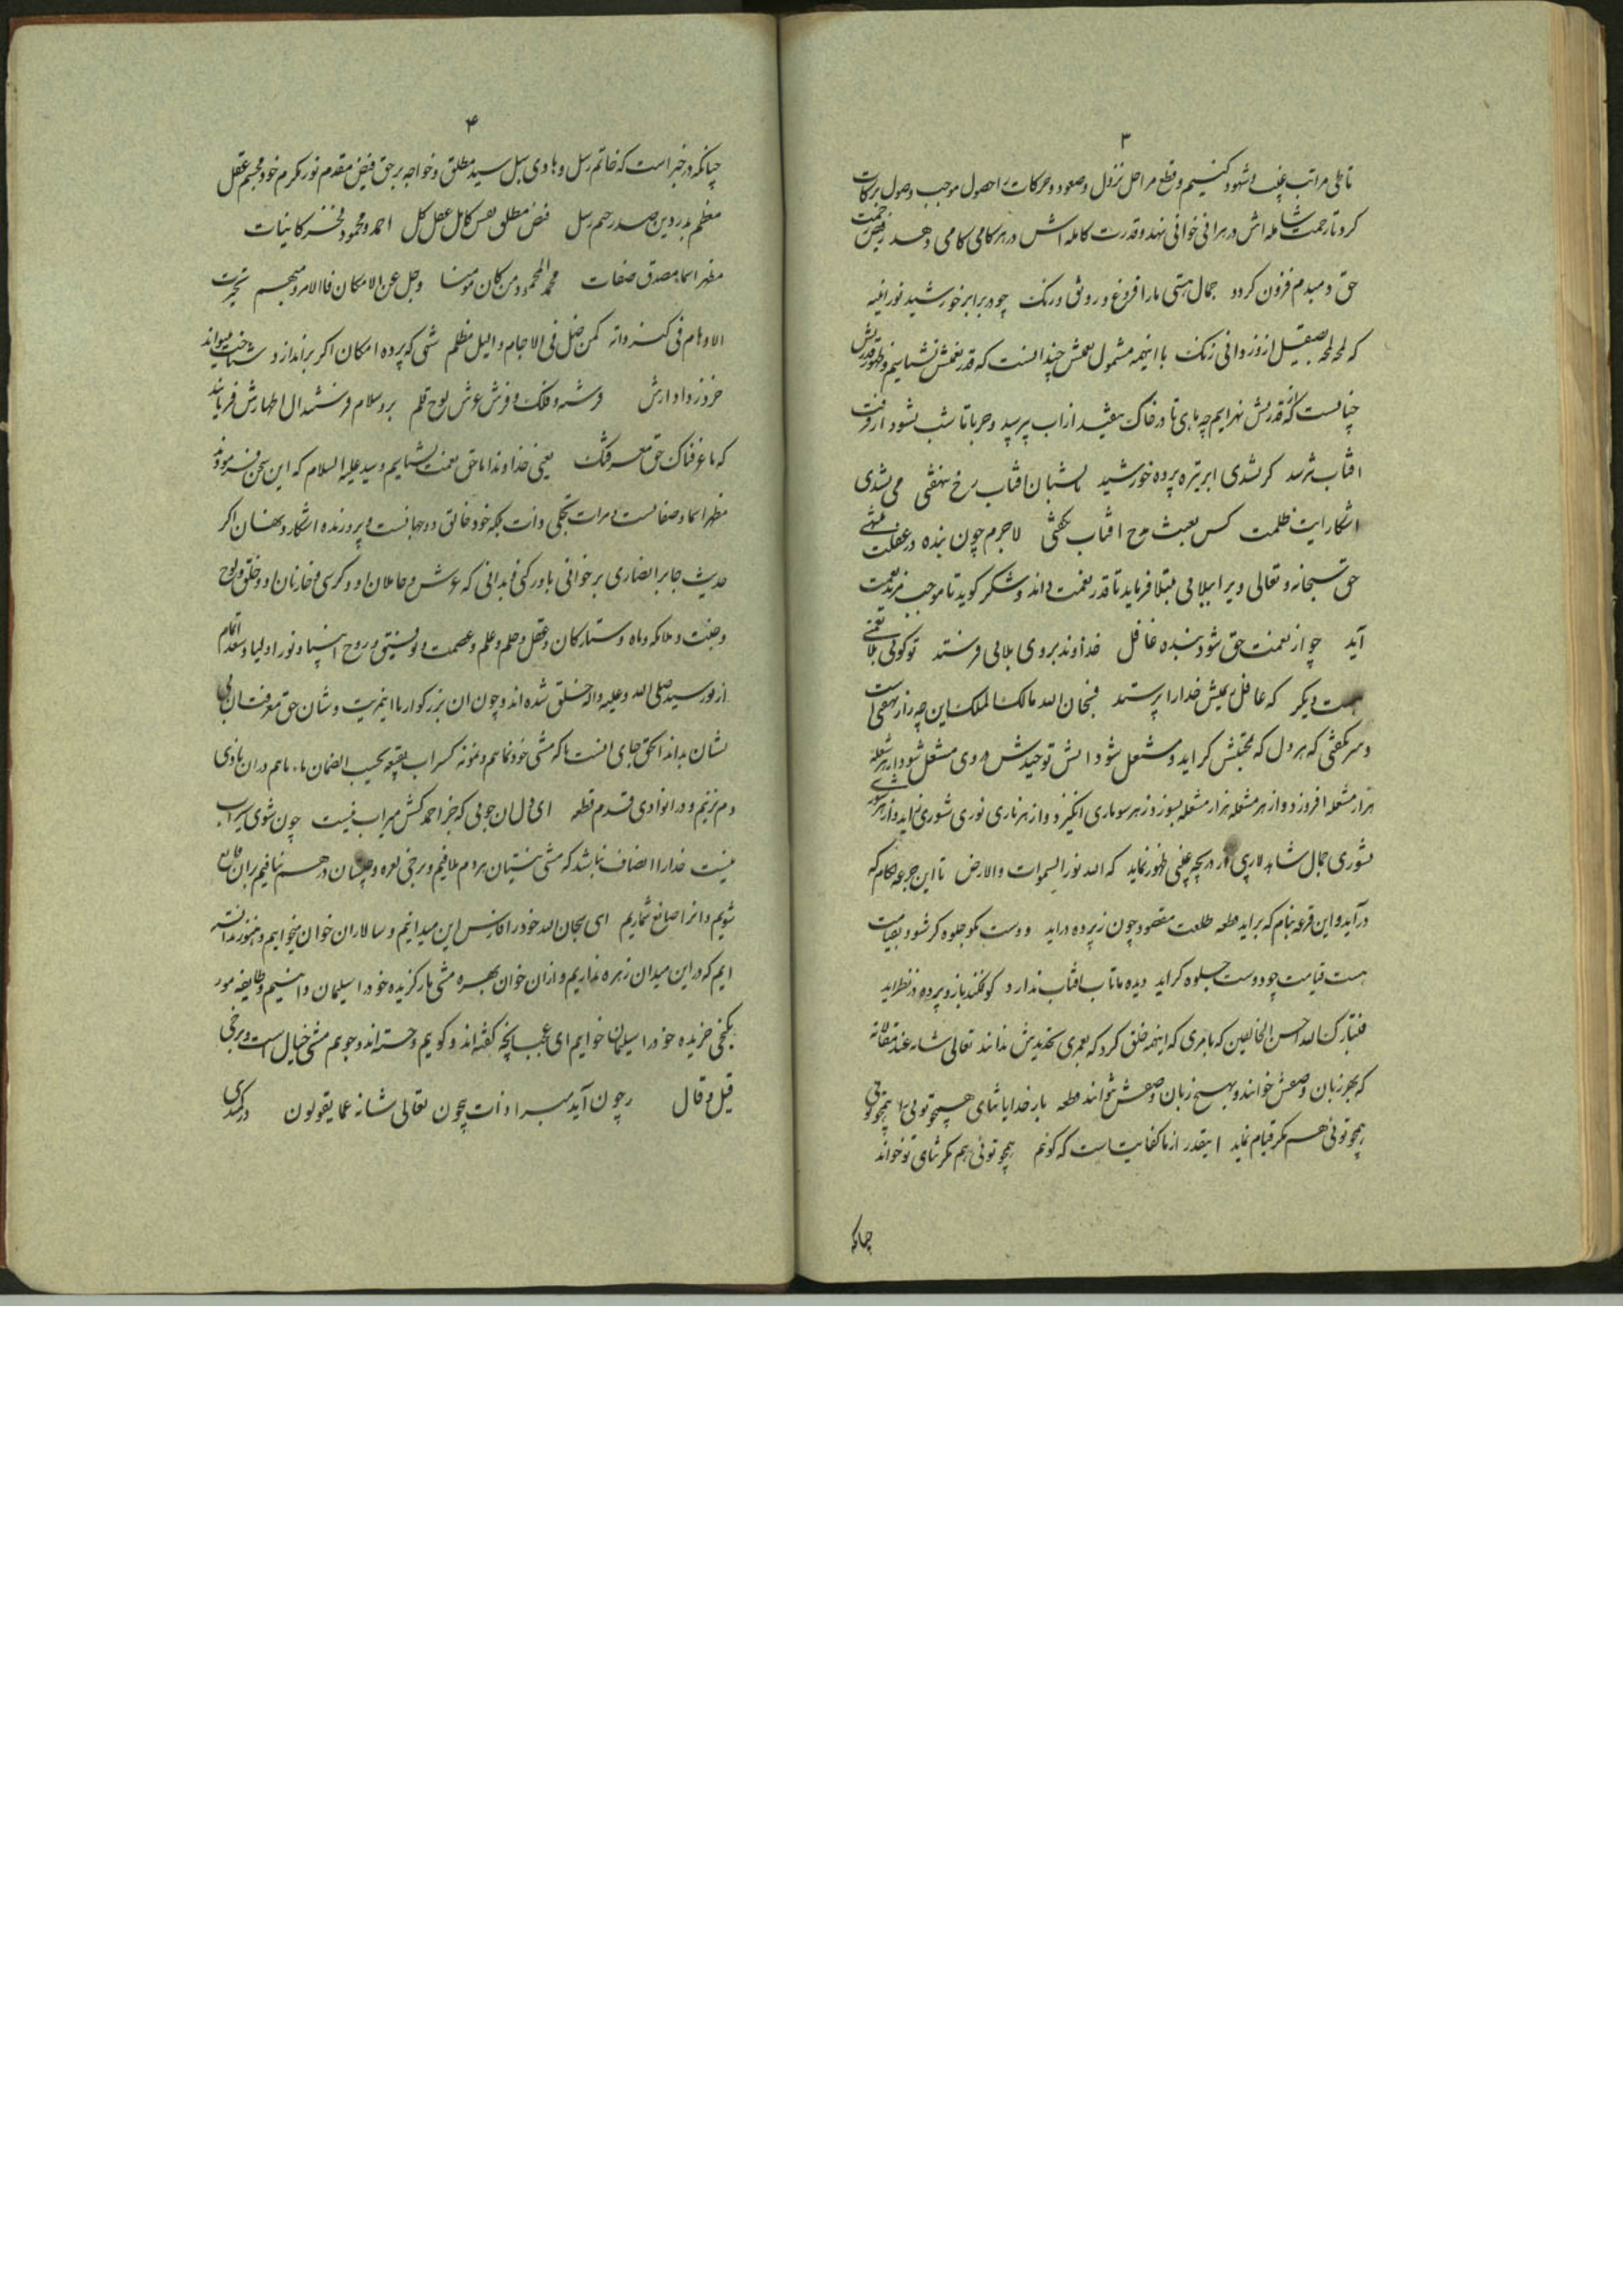 ۳
تا طی مراتب غیب و شهود کنیم و قطع مراحل نزول و صعود و حرکات را حصول موجب وصول برکات
کردد تا رحمت شامله اش در هرانی خوانی نهد و قدرت کامله اش در هر کامی کامی دهد ز فیض رحمت
حق دمبدم فزون کردد جمال هستی مارا فروغ و رونق و رنک چو در برابر خورشید نور
که لمحه لمحه بصیقل از و زدوانی زنک با اینهمه شمول نعمتش چندانست که قدر نعمتش نشناسیم و ظهور قدرتش
چنانست که قدرتش نهراسیم چه ماهی تا در خاک نیفتد از اب نپرسد و حربا تا شب نشود از رفتن
افتاب نترسد کر نشدی ابر تیره پرده خورشید یا شبان افتاب رخ ننهفتی می نشدی
اشکار ایت ظلمت کس بعبث مدح افتاب نکفتی لاجرم چون بنده در غفلت
حق سبحانه و تعالی ویرا ببلایی مبتلا فرماید تا قدر نعمت داند و شکر کوید تا موجب مزید نعمت
آید چو از نعمت حق شود بنده غافل خداوند بروی بلایی فرستد تو کوئی بلا نعمتی
هست دیکر که غافل بمیش خدا را پرستد فسبحان الله مالک الملک این چه راز نهفتی است
و سر نکفتی که هر دل که بمحبتش کراید و مشتعل شود اتش توحیدش در وی مشتعل شود از هر شعله
هزار مشعله افروزد و از هر مشعله هزار مشعله بسوزد ز هر سو ماری انکیزد و از هر ناری نوری شوری زاید و از هر
بشوری جمال شاهد لاریبی از دریچه غیبی ظهور نماید که الله نور السموات والارض تا این جرعه بکام که
درآید و این قرعه بنام که براید قطعه طلعت مقصود چون ز پرده دراید دوست مکو جلوه کر شود بقیامت
هست قیامت چو دوست جلوه کر اید دیده ما تاب افتاب ندارد کو نکند باز و پرده در نظر اید
فتبارک الله احسن الخالقین که بامری که اینهمه خلق کرد که بعمری تحدیدش ندانند تعالی شانه عند مقالاته
که بهر زبان وصفش خوانند و بهیچ زبان وصفش نتوانند قطعه بار خدایا ثنای همچو توئی را همچو توئی
همچو توئی هم مکر قیام نماید اینقدر از ما کفایت است که کوئیم همچو توئی هم مکر ثنای تو خواند
چنانکه
۴
چنانکه در خبر است که خاتم رسل و هادی سبل سید مطلق و خواجه بر حق فیض مقدم نور مکرم خود مجسم عقل
معظم بدر دین صدر رسل فیض مطلق نفس کامل عقل کل احمد و محمود و مفخر کائنات
مظهر اسما و مصدق صفات محمد المحمود من کان مومنا وجل عن الامکان فالامر مبهم تحیرت
الاوهام فی کنه ذاته کمن ضل فی الاجام واللیل مظلم شهی که پرده امکان اکر براندازد شناخت نتواند
خرد ز دادارش فرشته و فلک و فرش و عرش لوح و قلم برو سلام فرستد ال اطهارش فرماید
که ما عرفناک حق معرفتک یعنی خداوندا ما حق نعمت نشناسیم و سید علیه السلام که این سخن فرموده
مظهر اسما و صفاتست و مرات تجلی ذات بلکه خود خالق دو جهانست و پرورنده اشکار و نهان اکر
حدیث جابر انصاری بر خوانی باور کنی و بدانی که عرش و حاملان او و کرسی و خازنان او و خلق لوح
و جنت و ملائکه و ماه و ستارکان و عقل و حلم و علم و عصمت و توفیق و روح انبیا و نور اولیا و سعدا تمام
از نور سید صلی الله علیه واله خلق شده اند و چون ان بزرکوار با اینمزیت و شان حق معرفت ان بی
نشان نداند الحق جای انست که مشتی خودنما هم و نمونه کسراب بقیعه یحسبه الظمان ماء ما هم در ان وادی
دم نزنیم و در انوادی قدم قطعه ای دل ان جوبی که جز احمد کش سیراب نیست چون شوی سیراب
نیست خدا را انصاف نباشد که مشتی نیستیان بر دم ملافیم و برخی نعره و در هم نبافیم بران قانع
شویم و انرا صانع شماریم ای سبحان الله خود را فارس این میدانیم و سالاران خوان میخوانیم و هنوز ندانسته
ایم که در این میدان زهره نداریم و ازان خوان بهره مشتی بار کزیده خود را سلیمان دانیم و طایفه مور
بکنجی خزیده خود را سلیمان خوانیم ای عجب انچه کفته اند و کوئیم و جسته اند و جوئیم مشتی خیال است و برخی
قیل و قال چون آید سبر او ذات بیچون تعالی شانه عما یقولون